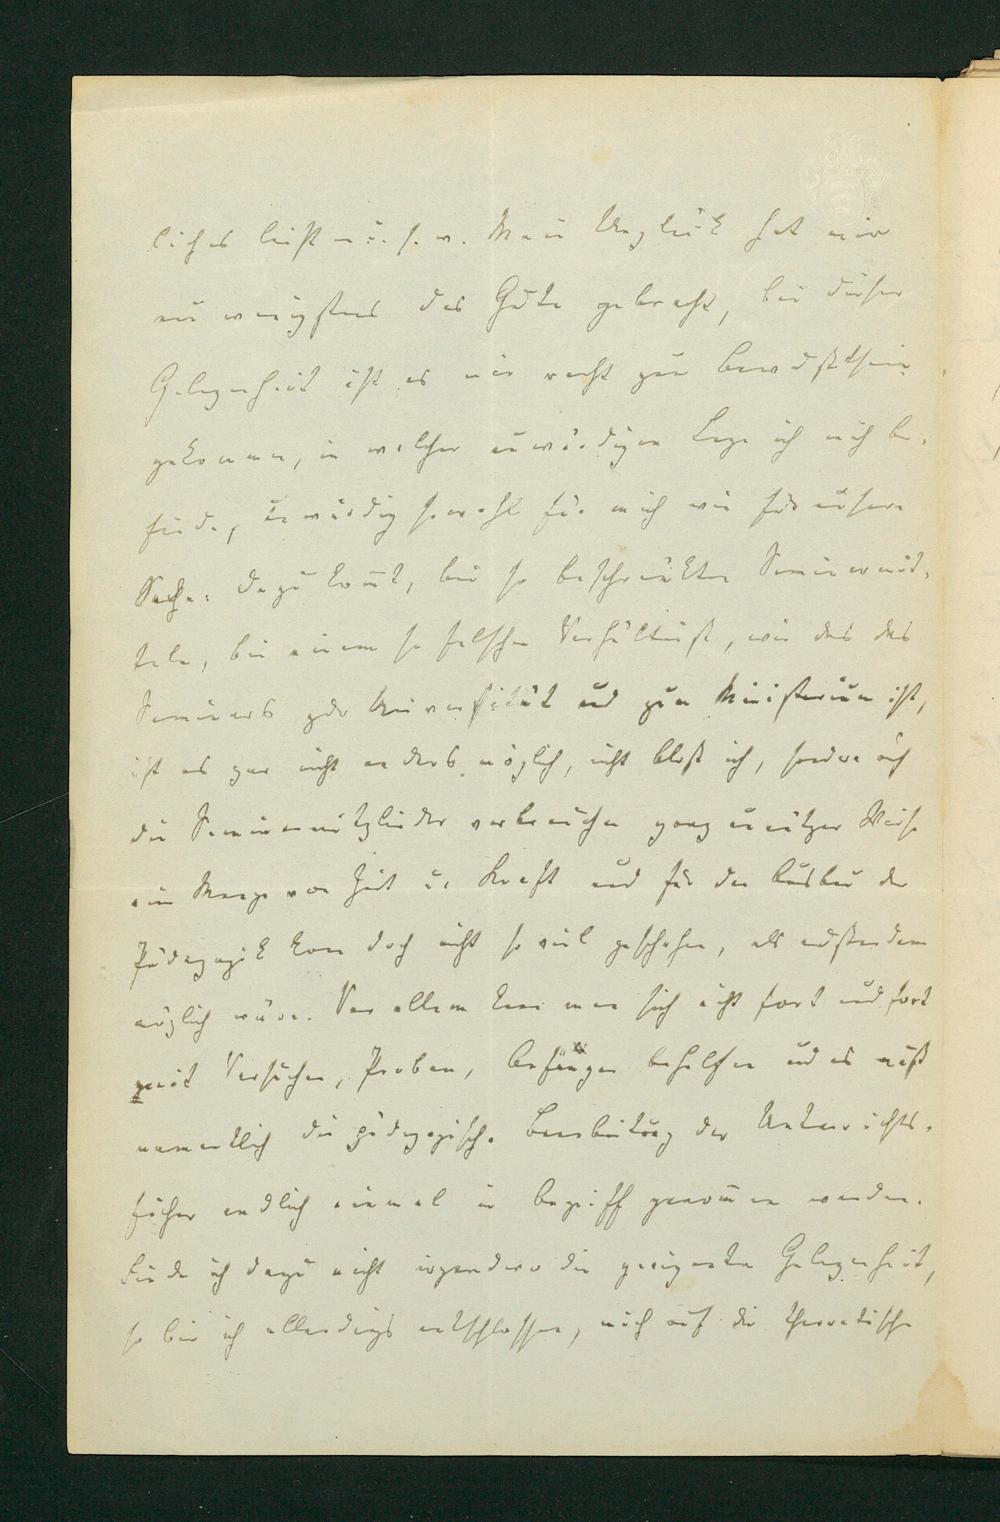 liches leist u. s. w. Mein Unglück hat mir
nun wenigstens das Gute gebracht, bei dieser
Gelegenheit ist es mir recht zum Bewußtsein
gekommen, in welcher unwürdigen Lage ich mich be-
finde, unwürdig sowohl für mich wie für unsere
Sache. Dazu kom̄t, bei so beschränkten Seminarmit-
teln, bei einem so falschen Verhältniß, wie das des
Seminars zur Universität und zum Ministerium ist,
ist es gar nicht anders möglich, nicht bloß ich, sondern auch
die Seminarmitglieder verbrauchen ganz unnützer Weise
eine Menge von Zeit u. Kraft und für den Ausbau der
Pädagogik kann doch nicht so viel geschehen, als außerdem
möglich wäre. Vor allem kann man sich nicht fort und fort
mit Versuchen, Proben, Anfängen behelfen und es muß
namentlich die pädagogische Bearbeitung der Unterrichts-
fächer endlich einmal in Angriff genom̄en werden.
Finde ich dazu nicht irgendwo die geeignete Gelegenheit,
so bin ich allerdings entschlossen, mich auf die theoretische